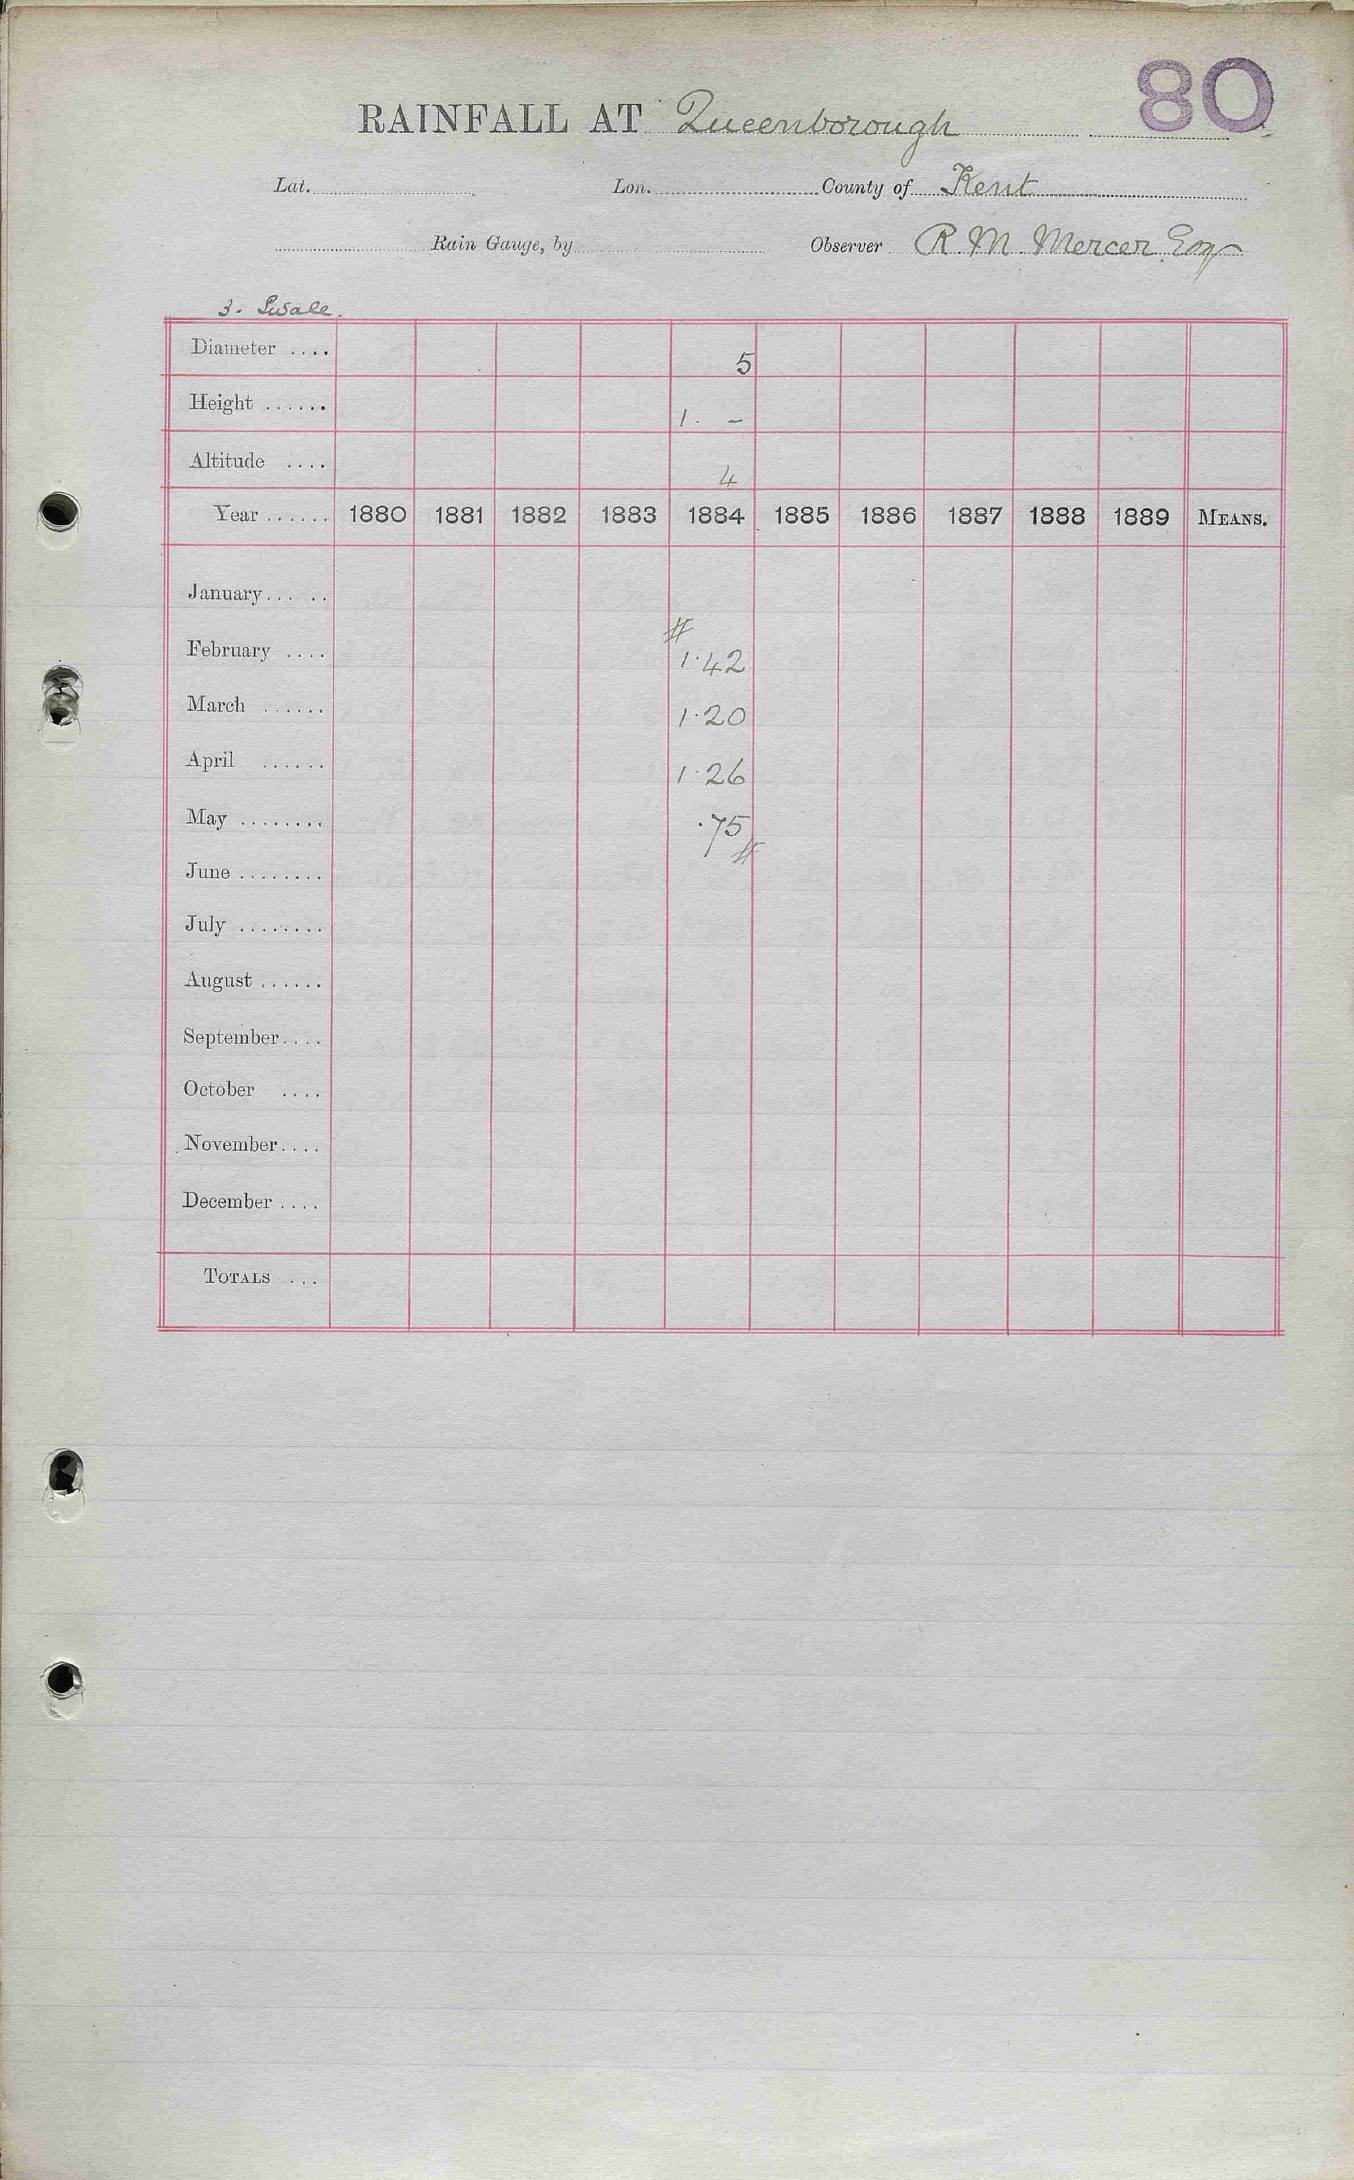 80
RAINFALL AT Queenborough
Lat. Lon. County of Kent
Rain Gauge, by Observer R. M. Mercer Esq
3. Swale.
Diameter .... 5
Height ...... 1. -
Altitude .... 4
Year ...... 1880 1881 1882 1883 1884 1885 1886 1887 1888 1889 MEANS.
January... ..
#
February .... 1.42
March ...... 1.20
April ...... 1.26
May ........ .75
#
June ........
July ........
August ......
September....
October ....
November....
December ....
TOTALS ....